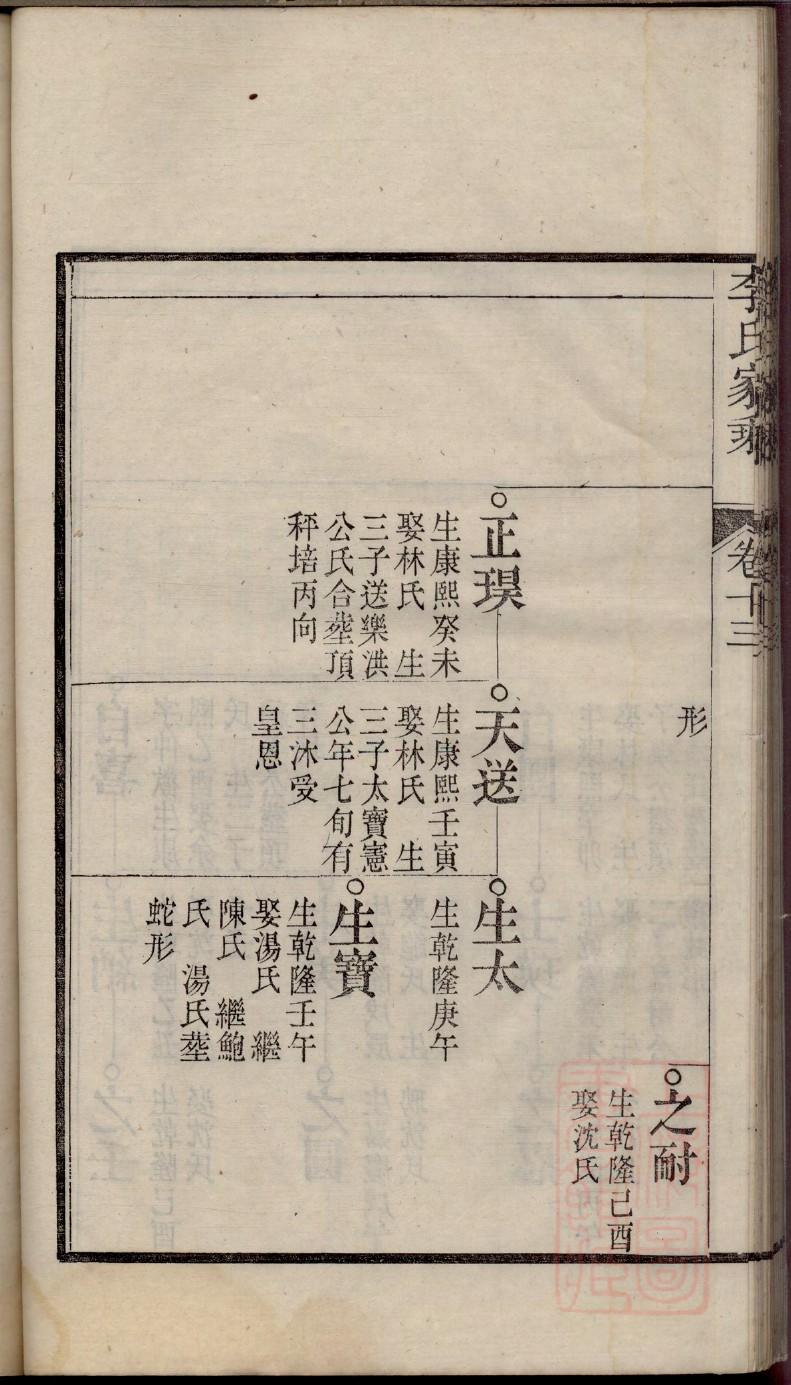 李氏家乘
卷十三
形
之耐
生乾隆己酉
娶沈氏
正璞
生康熙癸未
娶林氏 生
三子送樂洪
公氏合塟頂
秤培丙向
天送
生康熙壬寅
娶林氏 生
三子太寶憲
公年七旬有
三沐受
皇恩
生太
生乾隆庚午
生寶
生乾隆壬午
娶湯氏 繼
陳氏 繼鮑
氏 湯氏塟
蛇形